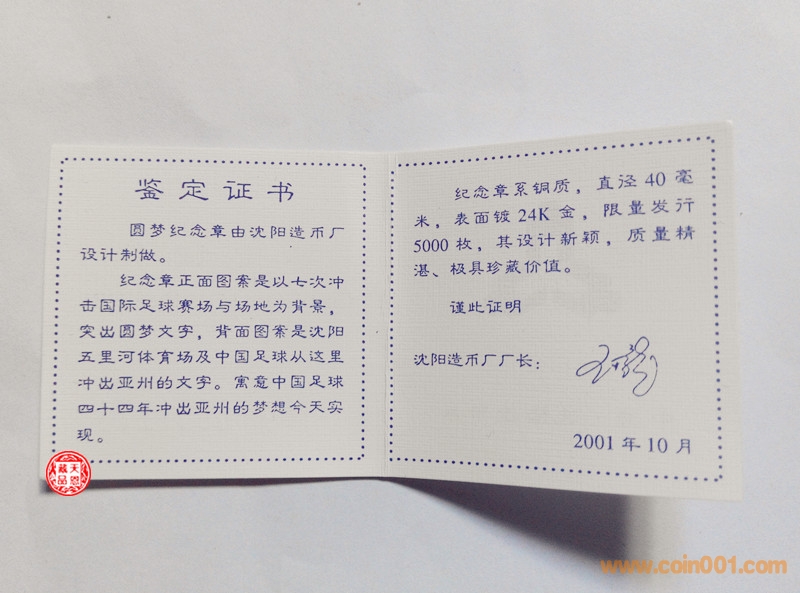 鉴定证书
圆梦纪念章由沈阳造币厂
设计制做。
纪念章正面图案是以七次冲
击国际足球赛场与场地为背景，
突出圆梦文字，背面图案是沈阳
五里河体育场及中国足球从这里
冲出亚州的文字。寓意中国足球
四十四年冲出亚州的梦想今天实
现。
纪念章系铜质，直径40毫
米，表面镀24K金，限量发行
5000枚，其设计新颖，质量精
湛、极具珍藏价值。
谨此证明
沈阳造币厂厂长：
2001年10月
天恩
藏品
www.coin001.com